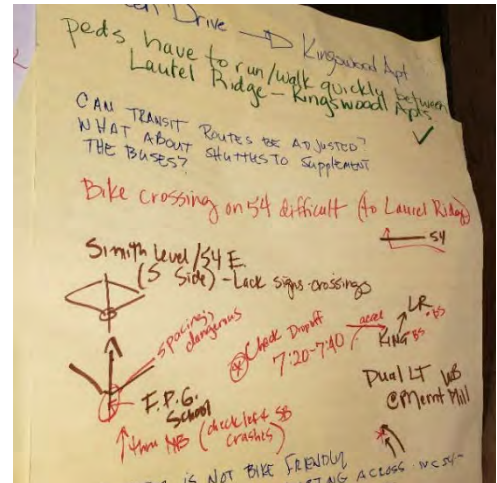 Drive → Kingswood Apt
peds have to run/walk quickly between
Laurel Ridge - Kingswood Apts.
CAN TRANSIT ROUTES BE ADJUSTED?
WHAT ABOUT SHUTTLES TO SUPPLEMENT
THE BUSES?
Bike crossing on 54 difficult (to Laurel Ridge)
54
Smith Level/54 E
(S Side) - Lack signs-crossings
spacing,
dangerous
Check Dropoff
7:20-7:40
accel
LR
BS
KING
BS
F.P.G.
School
thru NB (check left SB
crashes)
Dual LT WB
@ Merrit Mill
IS NOT BIKE FRIENDLY
ACROSS NC 54